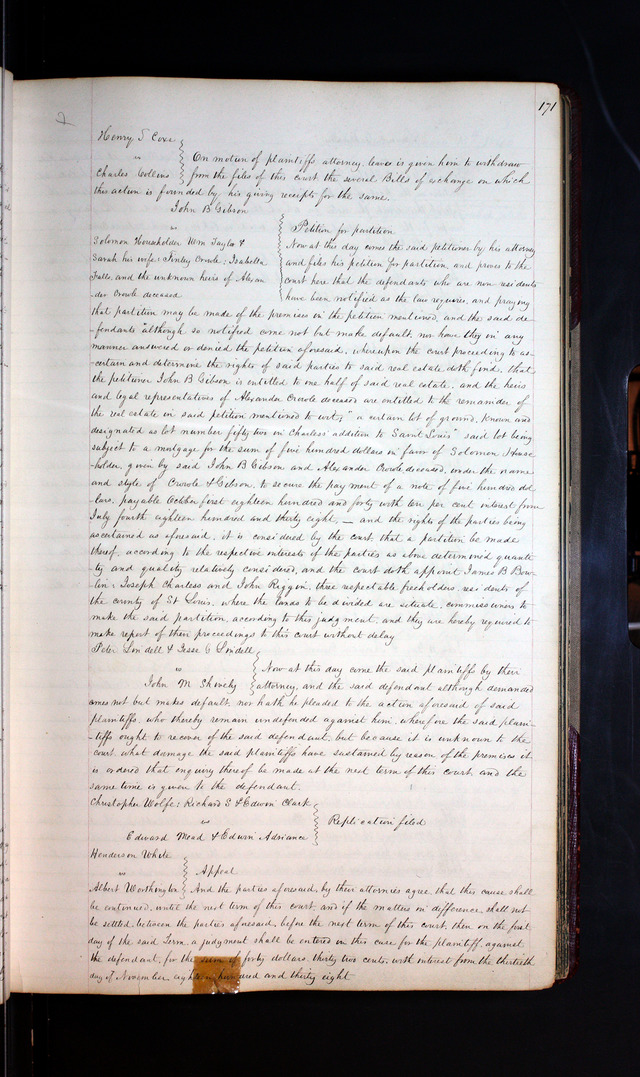 171
Henry T Coxe
vs
Charles Collins
On motion of plaintiffs attorney leave is given him to withdraw
from the files of this court the several Bills of exchange on which
this action is founded by his giving receipts for the same.
John B Gibson
vs
Solomon Householder Wm Taylor &
Sarah his wife: Finley Crowle: Isabella
and the unknown heirs of Alexan
der Crowle deceased
Petition for partition
Now at this day comes the said petitioner by his attorney
and files his petition for partition, and proves to the
court here that the defendants who are non-residents
have been notified as the law requires, and praying
that partition may be made of the premises in the petition mentioned, and the said de-
-fendants although so notified come not but make default, nor have they in any
manner answered or denied the petition aforesaid, whereupon the court proceeding to as-
-certain and determine the rights of said parties to said real estate doth find, that
the petitioner John B Gibson is entitled to one half of said real estate, and the heirs
and legal representatives of Alexander Crowle deceased are entitled to the remainder of
the real estate in said petition mentioned to wit; "a certain lot of ground, known and
designated as lot number fifty two in Charless' addition to Saint Louis" said lot being
subject to a mortgage for the sum of five hundred dollars in favor of Solomon House
-holder, given by said John B Gibson and Alexander Crowle deceased, under the name
and style of Crowle & Gibson, to secure the payment of a note of five hundred dol
-lars, payable October first eighteen hundred and forty with ten per cent interest from
July fourth eighteen hundred and thirty eight, — and the rights of the parties being
ascertained as aforesaid, it is considered by the court that a partition be made
thereof, according to the respective interests of the parties as above determined quanti
-ty and quality relatively considered, and the court doth appoint James B Bow
-lin: Joseph Charless and John Riggin, three respectable freeholders, residents of
the county of St Louis, where the lands to be divided are situate, commissioners to
make the said partition, according to this judgment, and they are hereby required to
make report of their proceedings to this court without delay
Peter Lindell & Jesse G Lindell
vs
John M Shivily
Now at this day come the said plaintiffs by their
attorney, and the said defendant although demanded
comes not but makes default, nor hath he pleaded to the action aforesaid of said
plaintiffs, who thereby remain undefended against him, wherefore the said plain-
-tiffs ought to recover of the said defendant, but because it is unknown to the
court what damage the said plaintiffs have sustained by reason of the premises it
is ordered that enquiry thereof be made at the next term of this court, and the
same time is given to the defendant.
Christopher Wolfe: Richard S & Edwin Clark
vs
Edward Mead & Edwin Adriance
Replication filed
Henderson White
vs
Albert Worthington
Appeal
And the parties aforesaid, by their attornies agree, that this cause shall
be continued, until the next term of this court, and if the matters in difference, shall not
be settled, between the parties aforesaid, before the next term of this court, then on the first
day of the said Term, a judgment shall be entered in this case for the plaintiff, against
the defendant, for the sum of forty dollars, thirty two cents, with interest from the thirtieth
day of November eighteen hundred and thirty eight